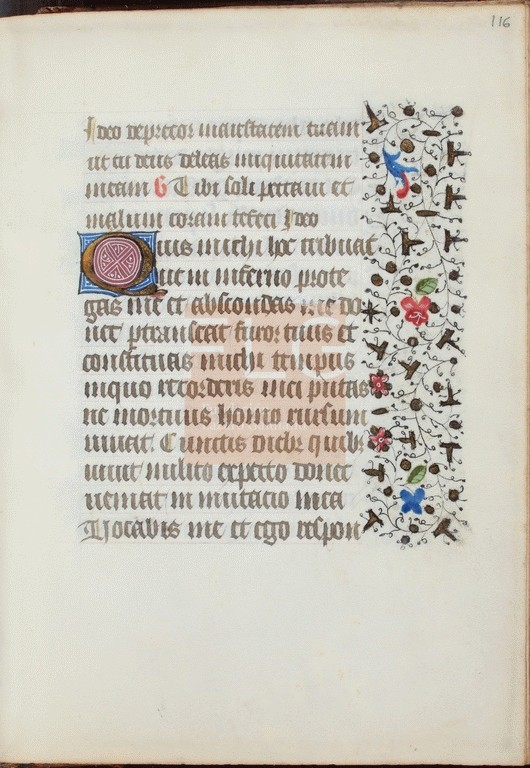 116
Ideo deprecor maiestatem tuam
ut tu deus deleas iniquitatem
meam G Tibi soli peccaui et
malum coram te feci Ideo
Quis michi hoc tribuat
ut in inferno prote
gas me et abscondas me do
nec ptranseat furor tuus et
constituas michi tempus
inquo recorderis mei putas
ne mortuus homo rursum
uiuat. Cunctis diebz quibz
nunc milito expecto donec
ueniat in mutacio mea
Vocabis me et ego respon